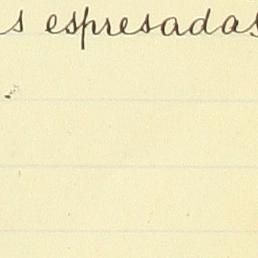 s espresadas